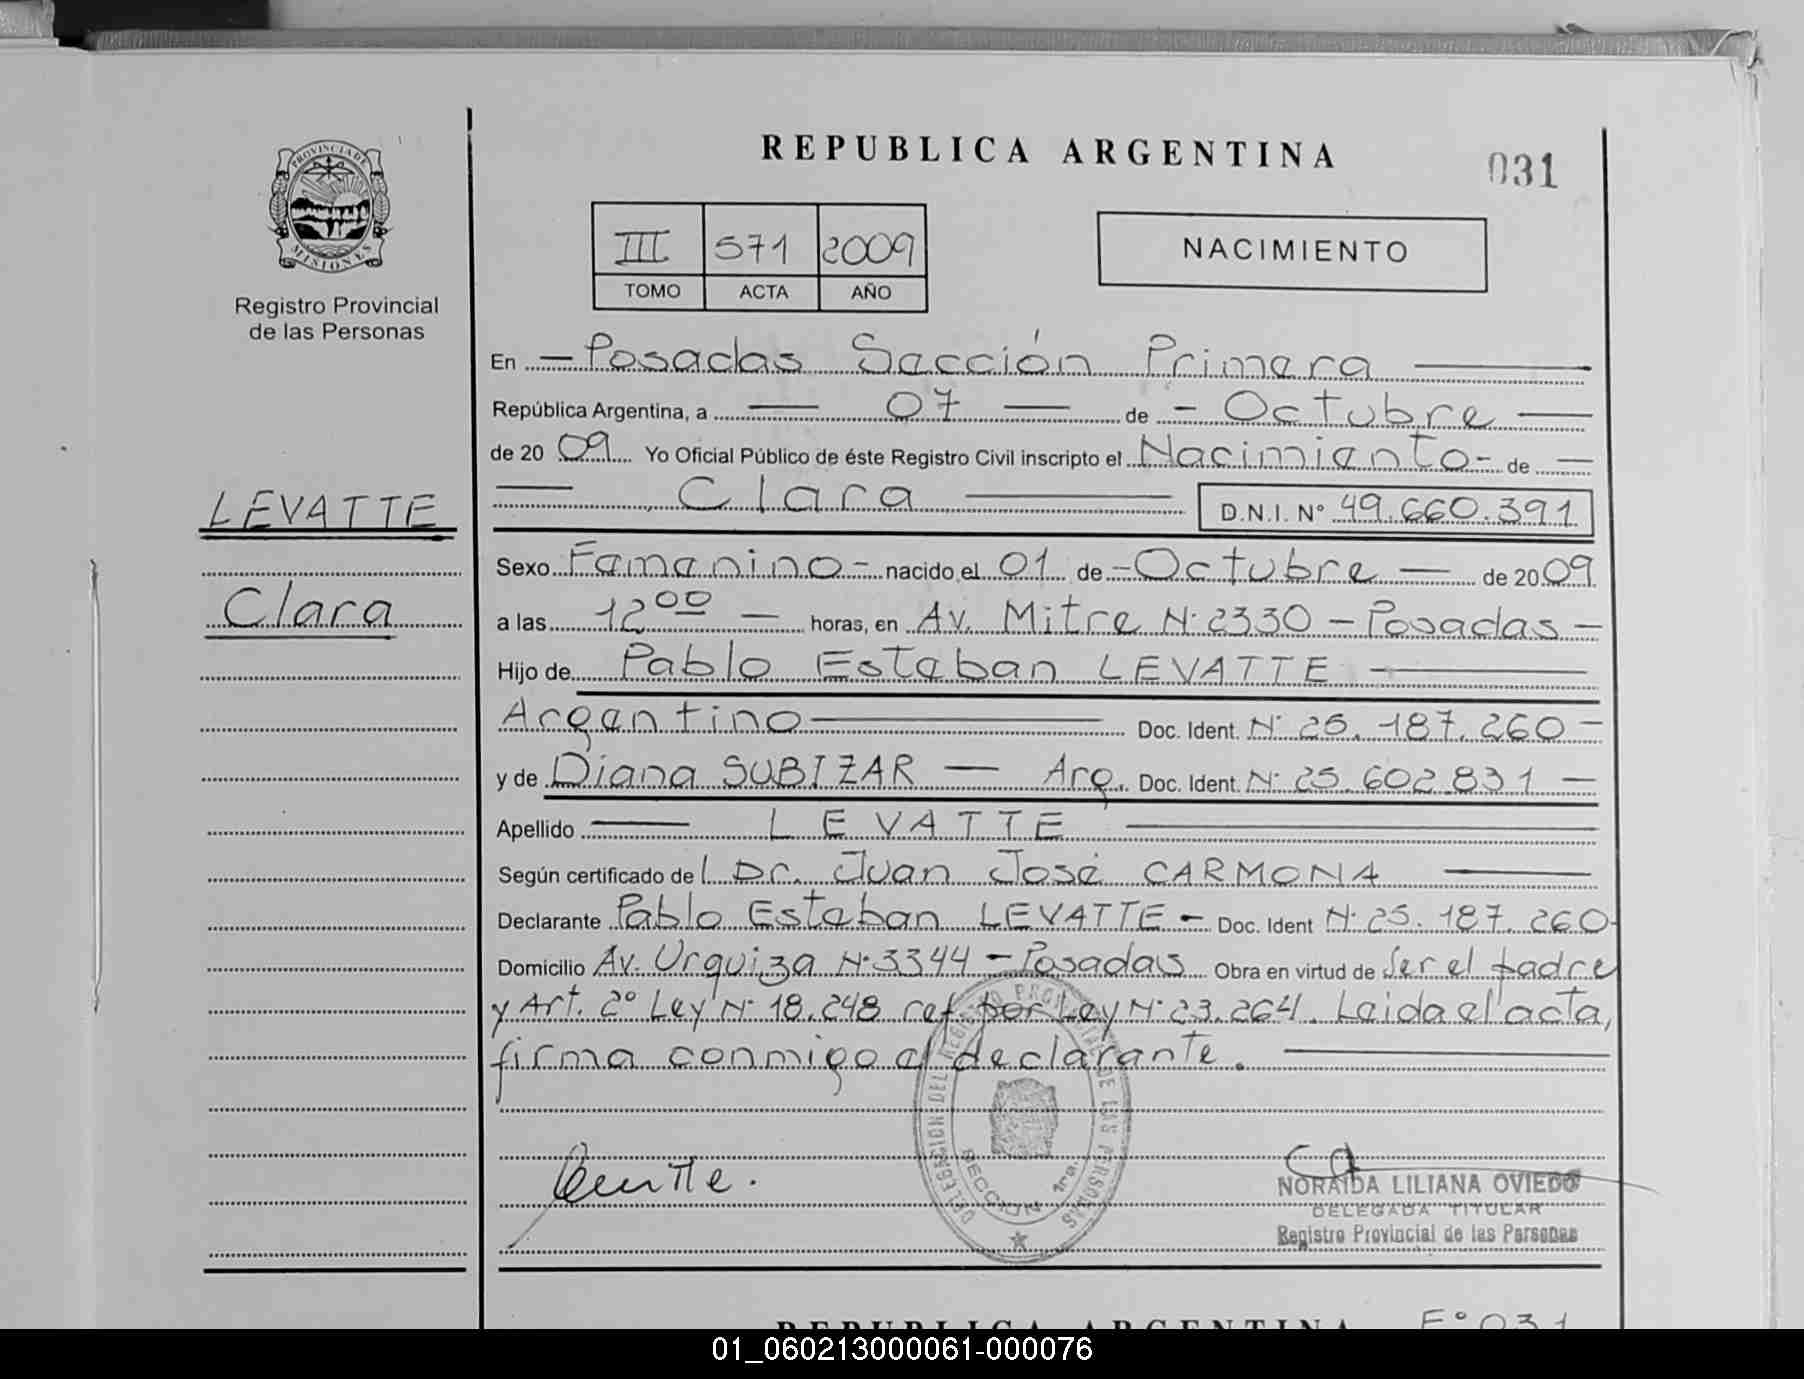 REPUBLICA ARGENTINA
031
PROVINCIA DE
MISIONES
Registro Provincial
de las Personas
III 571 2009
TOMO ACTA AÑO
NACIMIENTO
En Posadas Sección Primera
República Argentina, a 07 de Octubre
de 2009 Yo Oficial Público de éste Registro Civil inscripto el Nacimiento de
Clara D.N.I. N° 49.660.391
LEVATTE
Clara
Sexo Femenino nacido el 01 de Octubre de 2009
a las 12 00 horas, en Av. Mitre N° 2330 - Posadas -
Hijo de Pablo Esteban LEVATTE
Argentino Doc. Ident. N° 25.187.260 -
y de Diana SUBIZAR - Arg. Doc. Ident. N° 25.602.831 -
Apellido LEVATTE
Según certificado del Dr. Juan José CARMONA
Declarante Pablo Esteban LEVATTE - Doc. Ident N° 25.187.260-
Domicilio Av. Urquiza N° 3344 - Posadas Obra en virtud de Ser el padre
y Art. 2° Ley N° 18.248 ref por Ley N° 23.264. Leida el acta,
firma conmigo el declarante.
DELEGACION DEL REGISTRO PROVINCIAL DE LAS PERSONAS
SECCION 1ra.
NORAIDA LILIANA OVIEDO
DELEGADA TITULAR
Registro Provincial de las Personas
REPUBLICA ARGENTINA F° 031
01_060213000061-000076